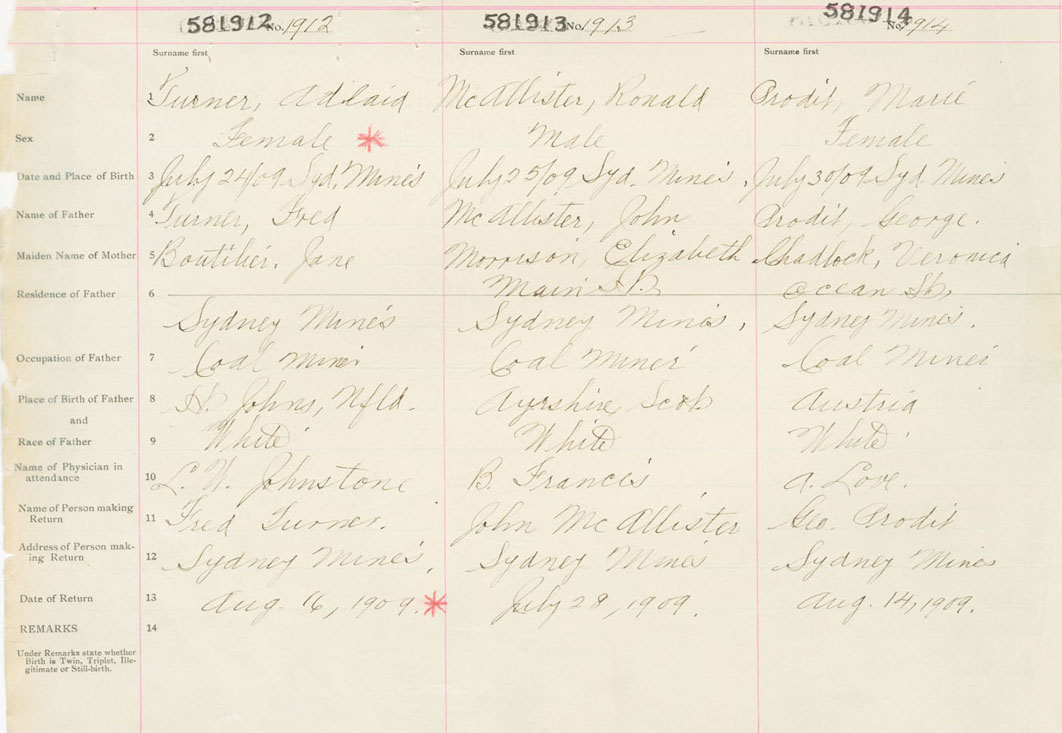 581912 No. 1912 581913 No. 1913 581914 No. 1914
Surname first Surname first Surname first
Name 1 Turner, Adlaid McAllister, Ronald Prodit, Marie
Sex 2 Female * Male Female
Date and Place of Birth 3 July 24/09 Syd. Mines July 25/09 Syd. Mines, July 30/09 Syd Mines
Name of Father 4 Turner, Fred McAllister, John Prodit, George.
Maiden Name of Mother 5 Boutilier, Jane Morrison, Elizabeth Chadlock, Veronica
Residence of Father 6 Main Ocean St,
Sydney Mines Sydney Mines, Sydney Mines.
Occupation of Father 7 Coal Miner Coal Miner Coal Miner
Place of Birth of Father 8 St. Johns, Nfld. Ayrshire Scot Austria
and
Race of Father 9 White White White
Name of Physician in attendance 10 L. W. Johnstone B. Francis A. Love.
Name of Person making Return 11 Fred Turner. John McAllister Geo. Prodit
Address of Person mak-
ing Return 12 Sydney Mines, Sydney Mines Sydney Mines
Date of Return 13 Aug. 16, 1909. * July 28, 1909. Aug. 14, 1909.
REMARKS 14
Under Remarks state whether
Birth is Twin, Triplet, Ille-
gitimate or Still-birth.